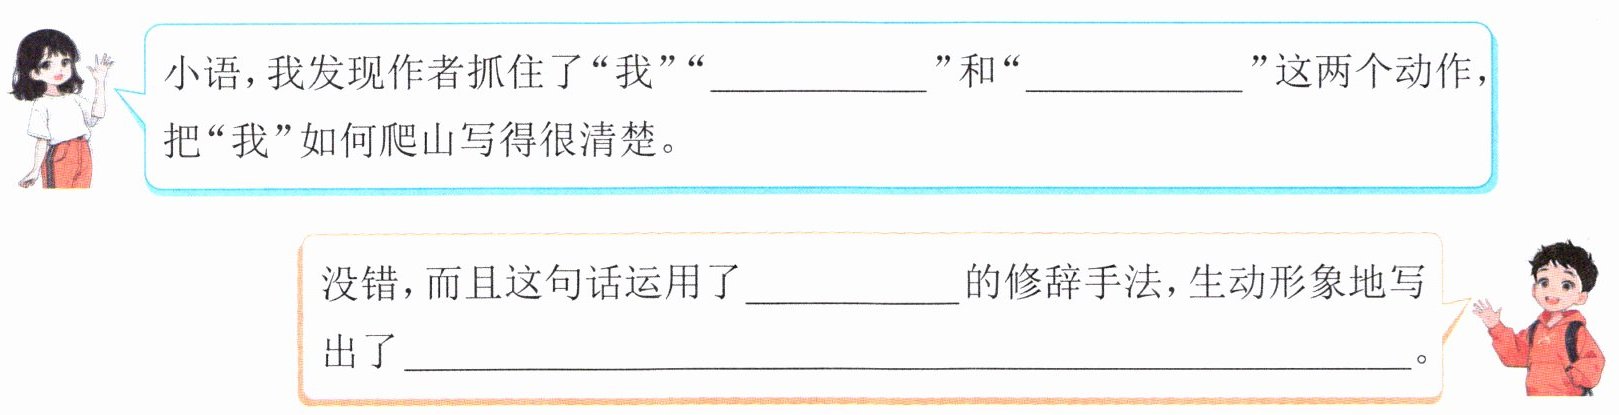 小语，我发现作者抓住了“我”“____________”和“____________”这两个动作，
把“我”如何爬山写得很清楚。
没错，而且这句话运用了____________的修辞手法，生动形象地写
出了____________________________________________________________。